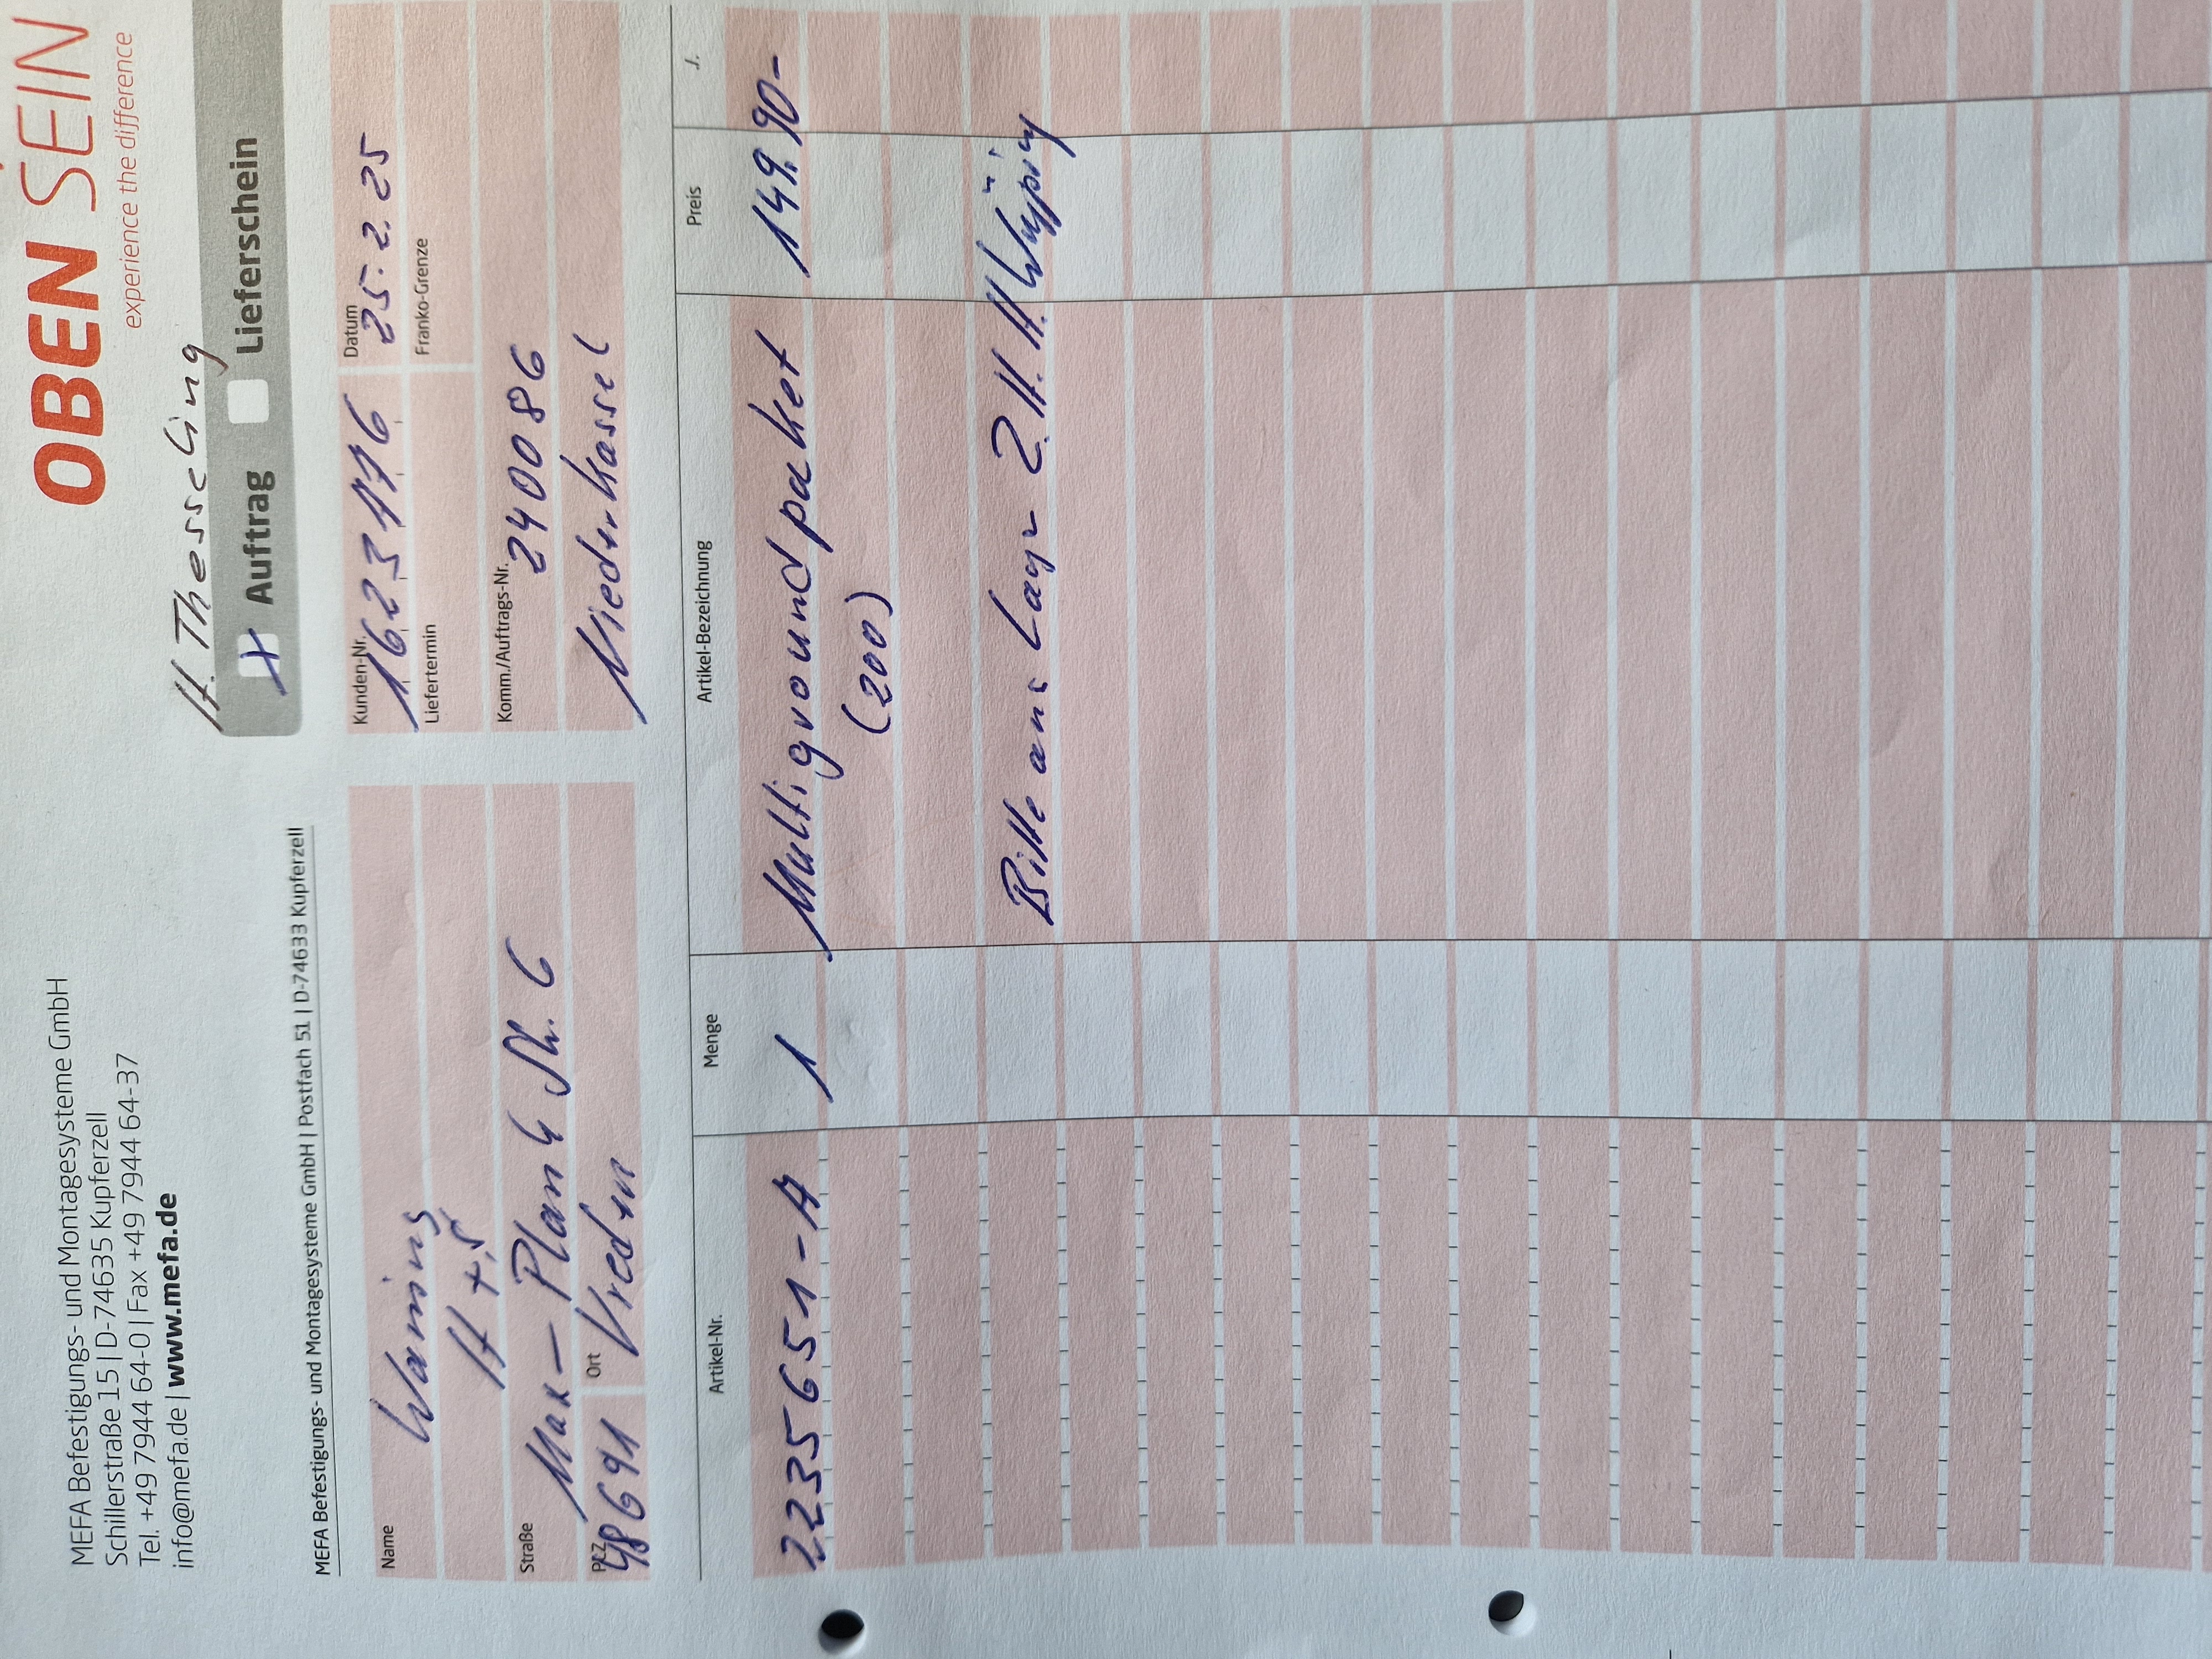 OBEN SEIN
experience the difference
MEFA Befestigungs- und Montagesysteme GmbH
Schillerstraße 15 | D-74635 Kupferzell
Tel. +49 7944 64-0 | Fax +49 7944 64-37
info@mefa.de | www.mefa.de
H. Thesseling
X Auftrag Lieferschein
MEFA Befestigungs- und Montagesysteme GmbH | Postfach 51 | D-74633 Kupferzell
Name
H + S
Straße Max-Plank Str. 6
PLZ 48691 Ort Vreden
Kunden-Nr. 1623776 Datum 25.2.25
Liefertermin Franko-Grenze
Komm./Auftrags-Nr. 240086
Niederkassel
Artikel-Nr. Menge Artikel-Bezeichnung Preis ./.
2235651-A 1 Multigroundpaket 149.90-
(200)
Bitte ans Lager Z.H. H.